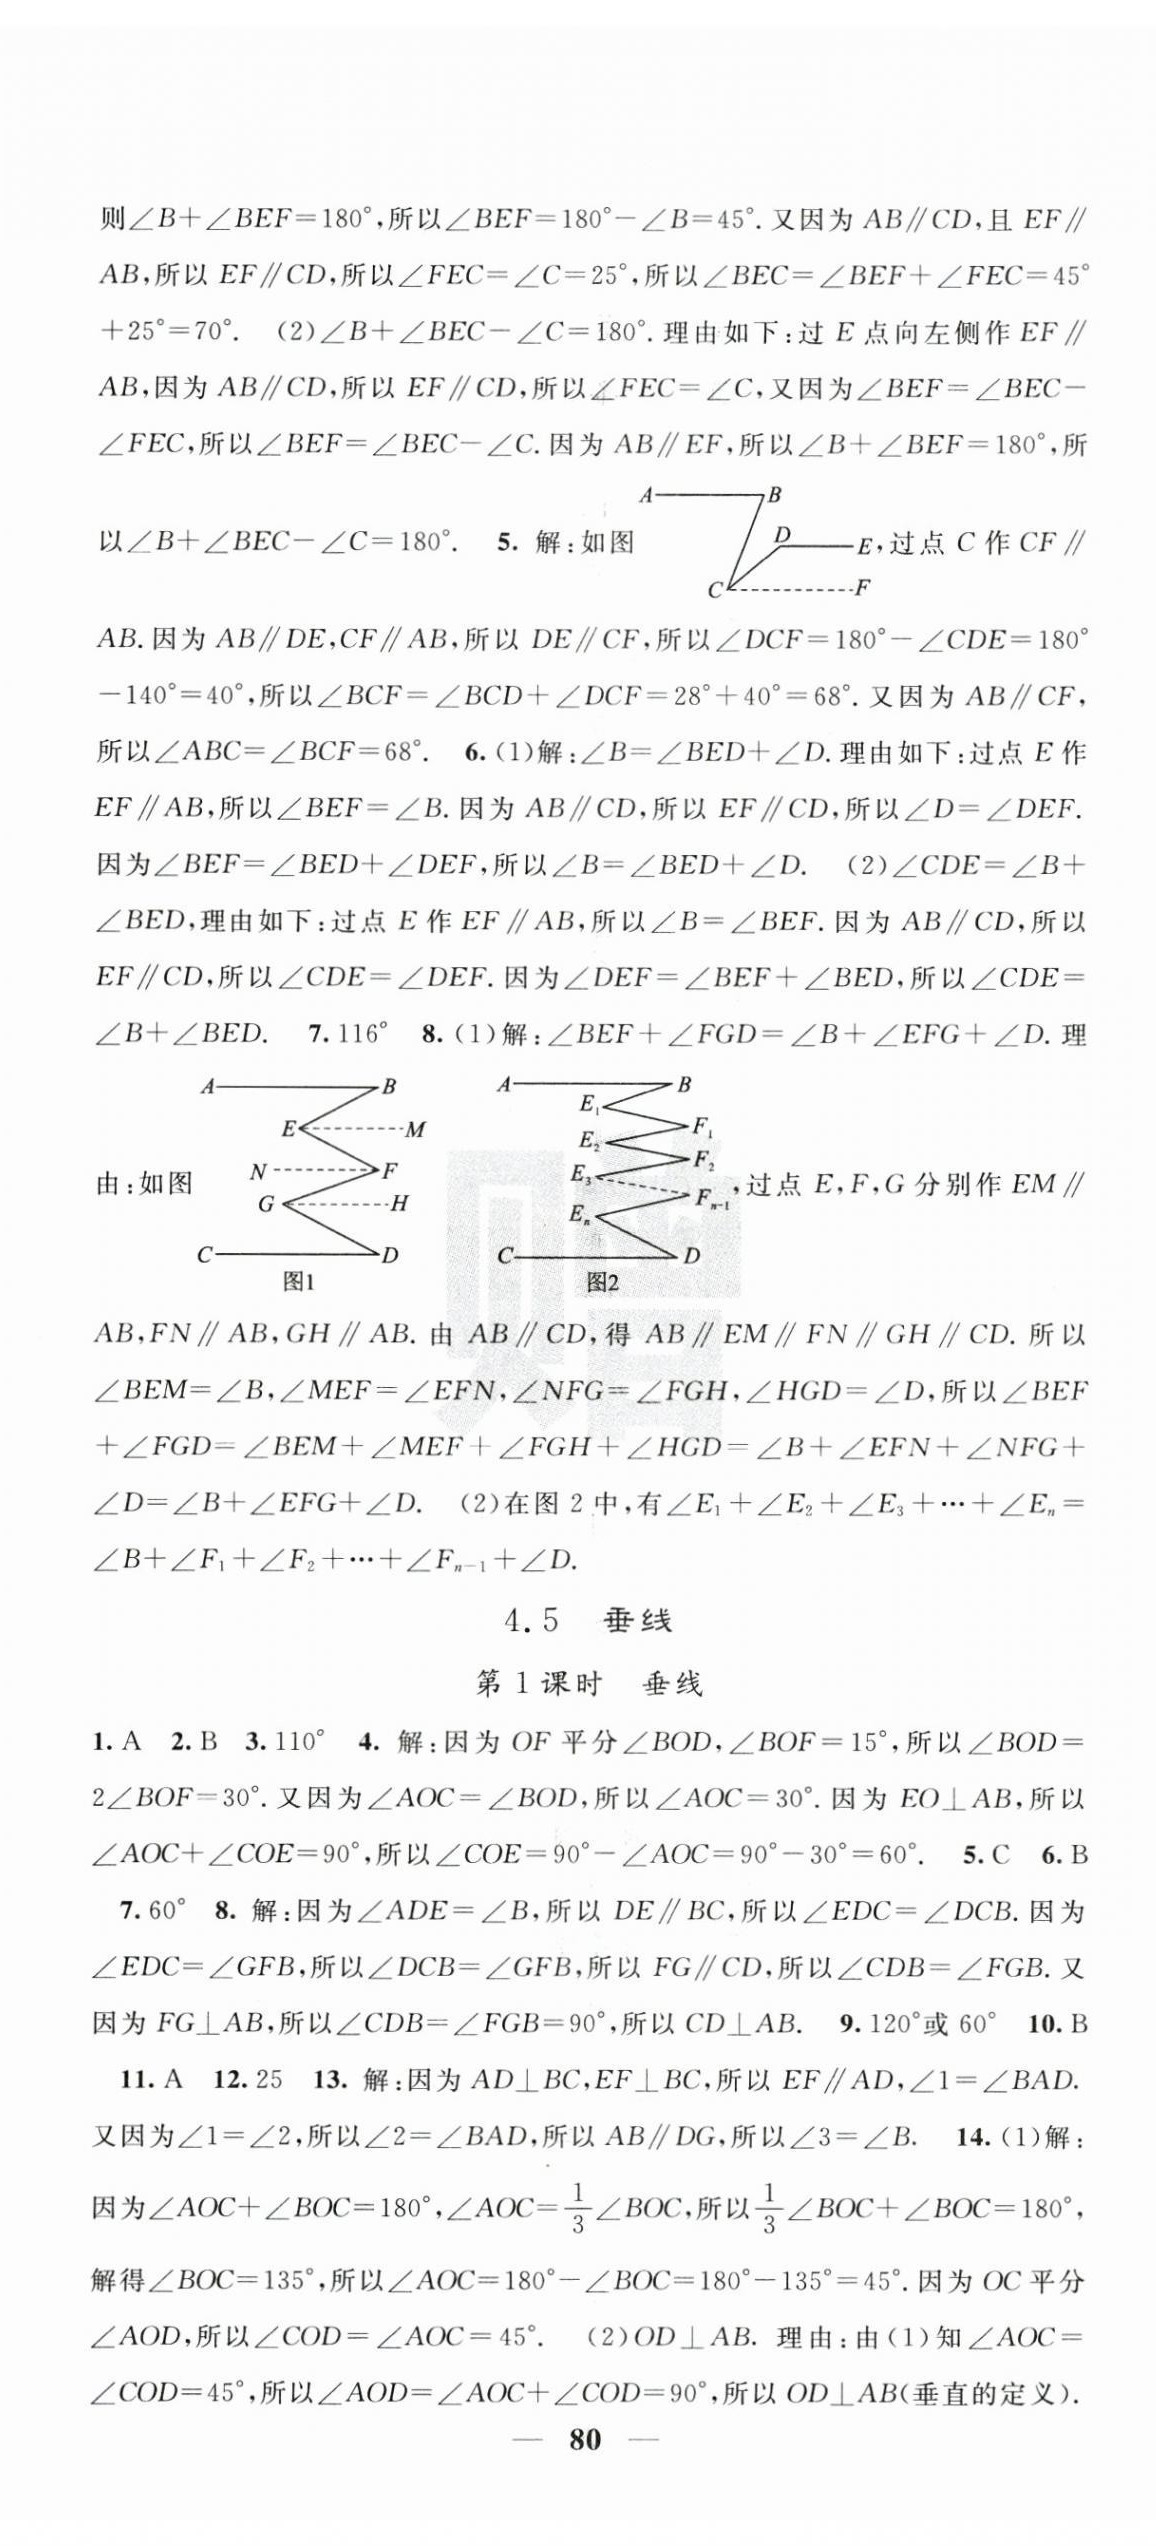 则∠B+∠BEF=180°,所以∠BEF=180°-∠B=45°.又因为 AB∥CD,且 EF∥
AB,所以 EF∥CD,所以∠FEC=∠C=25°,所以∠BEC=∠BEF+∠FEC=45°
+25°=70°. (2)∠B+∠BEC-∠C=180°.理由如下:过 E 点向左侧作 EF∥
AB,因为 AB∥CD,所以 EF∥CD,所以∠FEC=∠C,又因为∠BEF=∠BEC-
∠FEC,所以∠BEF=∠BEC-∠C.因为 AB∥EF,所以∠B+∠BEF=180°,所
A B
以∠B+∠BEC-∠C=180°. 5. 解:如图 D E,过点 C 作 CF∥
C F
AB.因为 AB∥DE,CF∥AB,所以 DE∥CF,所以∠DCF=180°-∠CDE=180°
-140°=40°,所以∠BCF=∠BCD+∠DCF=28°+40°=68°.又因为 AB∥CF,
所以∠ABC=∠BCF=68°. 6.(1)解:∠B=∠BED+∠D.理由如下:过点 E 作
EF∥AB,所以∠BEF=∠B.因为 AB∥CD,所以 EF∥CD,所以∠D=∠DEF.
因为∠BEF=∠BED+∠DEF,所以∠B=∠BED+∠D. (2)∠CDE=∠B+
∠BED,理由如下:过点 E 作 EF∥AB,所以∠B=∠BEF.因为 AB∥CD,所以
EF∥CD,所以∠CDE=∠DEF.因为∠DEF=∠BEF+∠BED,所以∠CDE=
∠B+∠BED. 7.116° 8.(1)解:∠BEF+∠FGD=∠B+∠EFG+∠D.理
A B A B
E M E₁ F₁
N F E₂ F₂
由:如图 G H E₃ Fₙ₋₁,过点 E,F,G 分别作 EM∥
Eₙ
C D C D
图1 图2
AB,FN∥AB,GH∥AB.由 AB∥CD,得 AB∥EM∥FN∥GH∥CD.所以
∠BEM=∠B,∠MEF=∠EFN,∠NFG=∠FGH,∠HGD=∠D,所以∠BEF
+∠FGD=∠BEM+∠MEF+∠FGH+∠HGD=∠B+∠EFN+∠NFG+
∠D=∠B+∠EFG+∠D. (2)在图 2 中,有∠E₁+∠E₂+∠E₃+⋯+∠Eₙ=
∠B+∠F₁+∠F₂+⋯+∠Fₙ₋₁+∠D.
4.5 垂线
第 1 课时 垂线
1.A 2.B 3.110° 4. 解:因为 OF 平分∠BOD,∠BOF=15°,所以∠BOD=
2∠BOF=30°.又因为∠AOC=∠BOD,所以∠AOC=30°.因为 EO⊥AB,所以
∠AOC+∠COE=90°,所以∠COE=90°-∠AOC=90°-30°=60°. 5.C 6.B
7.60° 8. 解:因为∠ADE=∠B,所以 DE∥BC,所以∠EDC=∠DCB.因为
∠EDC=∠GFB,所以∠DCB=∠GFB,所以 FG∥CD,所以∠CDB=∠FGB.又
因为 FG⊥AB,所以∠CDB=∠FGB=90°,所以 CD⊥AB. 9.120°或 60° 10.B
11.A 12.25 13. 解:因为 AD⊥BC,EF⊥BC,所以 EF∥AD,∠1=∠BAD.
又因为∠1=∠2,所以∠2=∠BAD,所以 AB∥DG,所以∠3=∠B. 14.(1)解:
因为∠AOC+∠BOC=180°,∠AOC=1/3∠BOC,所以1/3∠BOC+∠BOC=180°,
解得∠BOC=135°,所以∠AOC=180°-∠BOC=180°-135°=45°.因为 OC 平分
∠AOD,所以∠COD=∠AOC=45°. (2)OD⊥AB. 理由:由(1)知∠AOC=
∠COD=45°,所以∠AOD=∠AOC+∠COD=90°,所以 OD⊥AB(垂直的定义).
— 80 —